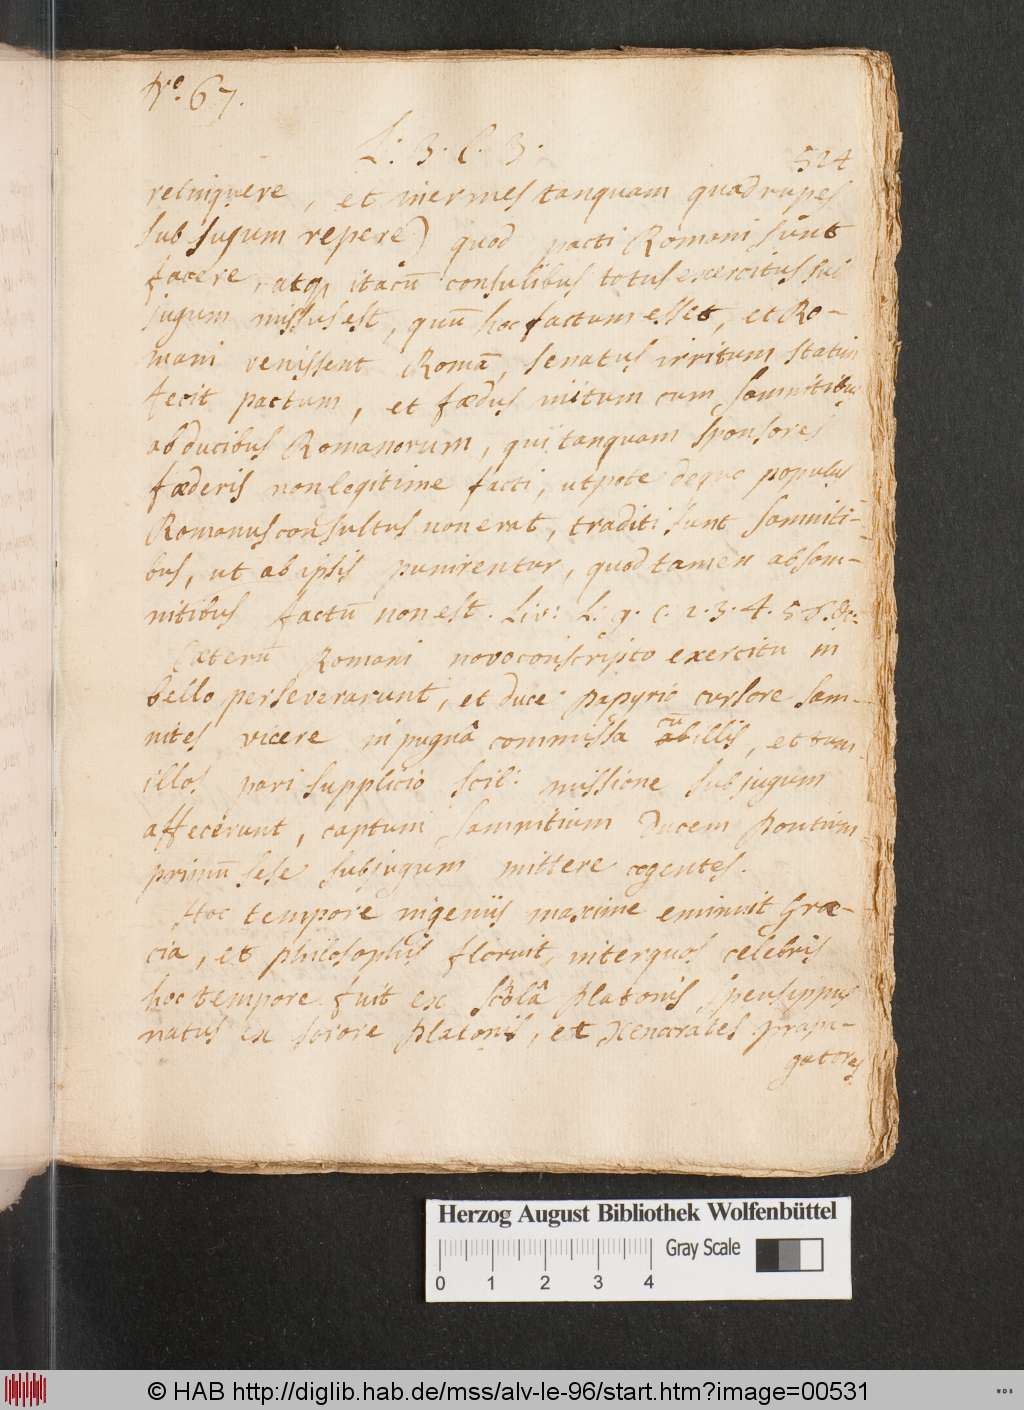 No. 67.
L: 3. C. 3.
524
relinquere, et inermes tanquam quadrupes
sub jugum repere) quod pacti Romani sunt
facere, atq, itacũ consulibus totus exercitus sub
jugum missus est, quũ hoc factum esset, et Ro-
mani venissent Romã, senatus irritum statim
fecit pactum, et fædus initum cum Samnitibus
ab ducibus Romanorum, qui tanquam sponsores
fæderis non legitime facti, utpote de quo populus
Romanus consultus non erat, traditi sunt Samniti-
bus, ut ab ipsis punirentur, quod tamen ab Sam-
nitibus factũ non est. Liv: L: 9. C. 2. 3. 4. 5 6. &c:
Cæterũ Romani novo conscripto exercitu in
bello perseverarunt, et duce papyrio cursore Sam-
nites vicere in pugnâ commissa cũ illis, et tum
illos pari supplicio scil: missione sub jugum
affecerunt, captum Samnitium Ducem Pontium
primũ sese sub jugum mittere cogentes.
Hoc tempore ingeniis maxime eminuit Græ-
cia, et philosophis floruit, inter quos celebris
hoc tempore fuit ex scholâ platonis, speusippus
natus ex sorore platonis, et Xenocrates propu-
gatores
Herzog August Bibliothek Wolfenbüttel
Gray Scale
0 1 2 3 4
© HAB http://diglib.hab.de/mss/alv-le-96/start.htm?image=00531